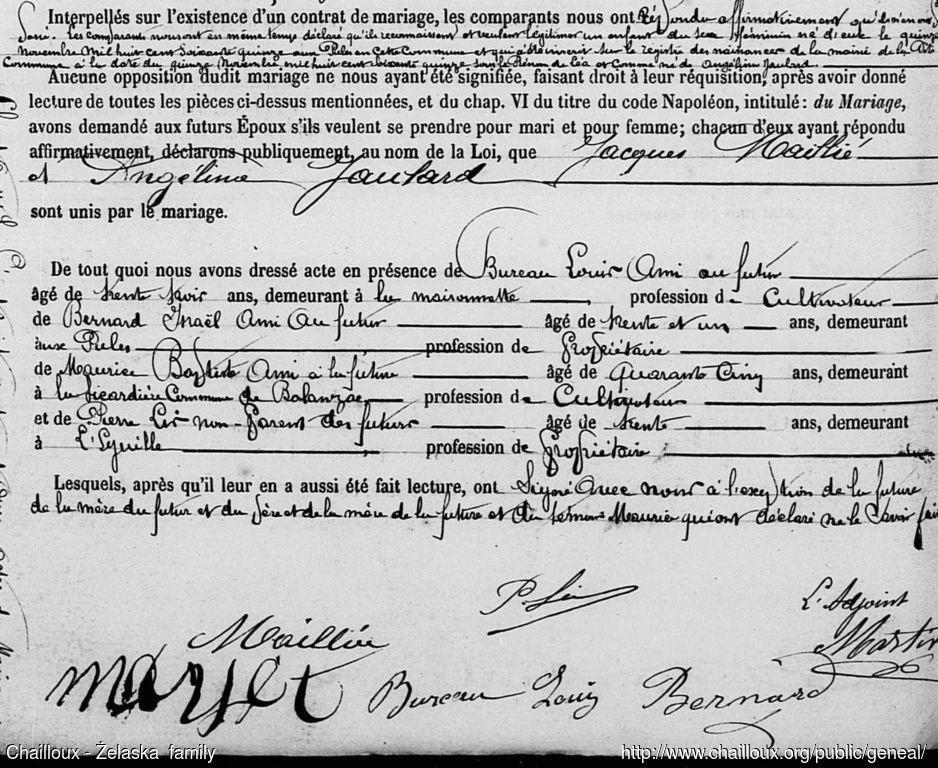 Interpellés sur l'existence d'un contrat de mariage, les comparants nous ont Répondu affirmativement
les comparants nous ont en même temps déclaré qu'ils reconnaissent et veulent légitimer un enfant du sexe féminin né d'eux le quinze
Novembre Mil huit cent soixante quinze aux Pieles en Cette Commune et inscrit sur le registre des naissances de la mairie de la dite
Commune à la date du quinze Novembre mil huit cent soixante quinze sous le Prénom de Léa et Comme née de Angéline Jaulard.
Aucune opposition dudit mariage ne nous ayant été signifiée, faisant droit à leur réquisition, après avoir donné
lecture de toutes les pièces ci-dessus mentionnées, et du chap. VI du titre du code Napoléon, intitulé : du Mariage,
avons demandé aux futurs Époux s'ils veulent se prendre pour mari et pour femme; chacun d'eux ayant répondu
affirmativement, déclarons publiquement, au nom de la Loi, que Jacques Maillié
et Angéline Jaulard
sont unis par le mariage.
De tout quoi nous avons dressé acte en présence de Bureau Louis Ami au futur
âgé de trente trois ans, demeurant à la maisonnette profession de Cultivateur
de Bernard Israël Ami Au futur âgé de trente et un ans, demeurant
aux Pieles profession de Propriétaire
de Maurice Baptiste Ami à la future âgé de Quarante Cinq ans, demeurant
à la Sicardière Commune de Balanzac profession de Cultivateur
et de Pierre non-Parent des futurs âgé de trente ans, demeurant
à L'Eguille profession de Propriétaire
Lesquels, après qu'il leur en a aussi été fait lecture, ont Signé Avec nous à l'exeption de la future
de la mère du futur et du père et de la mère de la future et du témoin Maurice qui ont déclaré ne le Savoir fai
L'Adjoint
Maillié
Martin
Bureau Louis Bernard
Chailloux - Żelaska family
http://www.chailloux.org/public/geneal/